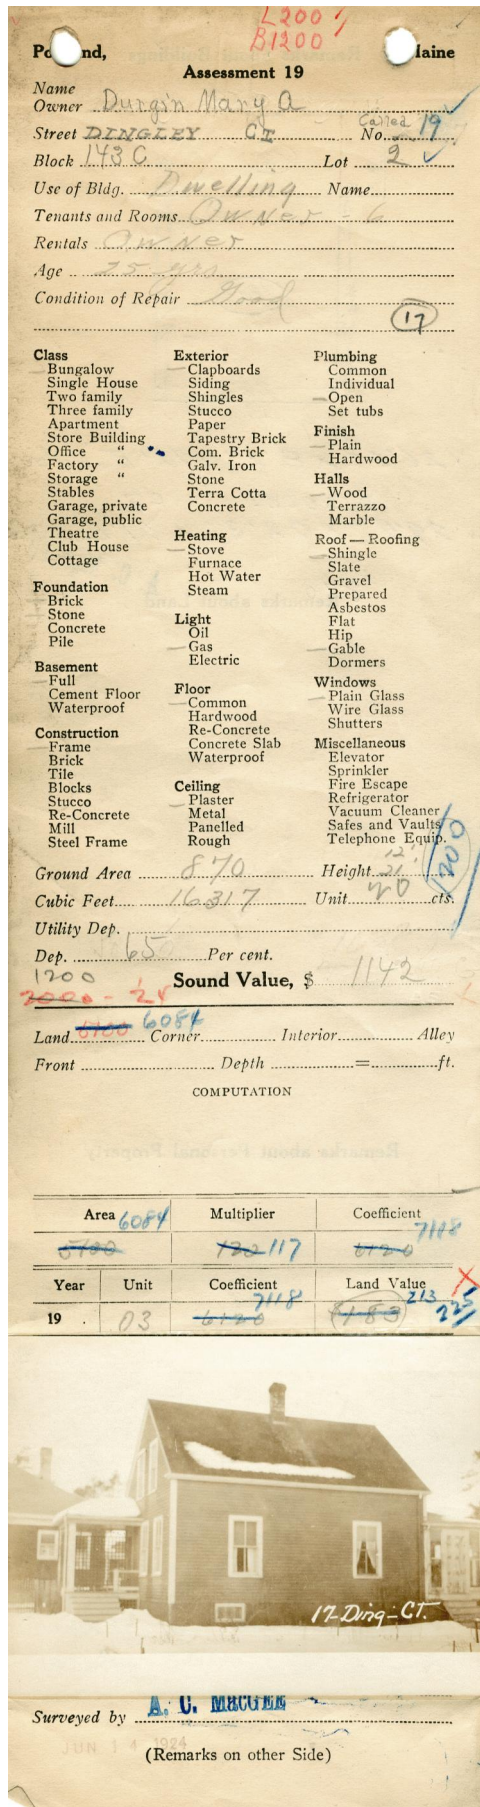 L200
B1200
Po nd, Maine
Assessment 19
Name
Owner Durgin Mary A
Called
Street DINGLEY CT No. 19
Block 143 C Lot 2
Use of Bldg. Dwelling Name
Tenants and Rooms Owner - 6
Rentals Owner
Age 25 yrs
Condition of Repair Good
17
Class
Bungalow
Single House
Two family
Three family
Apartment
Store Building
Office "
Factory "
Storage "
Stables
Garage, private
Garage, public
Theatre
Club House
Cottage
Foundation
Brick
Stone
Concrete
Pile
Basement
Full
Cement Floor
Waterproof
Construction
Frame
Brick
Tile
Blocks
Stucco
Re-Concrete
Mill
Steel Frame
Exterior
Clapboards
Siding
Shingles
Stucco
Paper
Tapestry Brick
Com. Brick
Galv. Iron
Stone
Terra Cotta
Concrete
Heating
Stove
Furnace
Hot Water
Steam
Light
Oil
Gas
Electric
Floor
Common
Hardwood
Re-Concrete
Concrete Slab
Waterproof
Ceiling
Plaster
Metal
Panelled
Rough
Plumbing
Common
Individual
Open
Set tubs
Finish
Plain
Hardwood
Halls
Wood
Terrazzo
Marble
Roof — Roofing
Shingle
Slate
Gravel
Prepared
Asbestos
Flat
Hip
Gable
Dormers
Windows
Plain Glass
Wire Glass
Shutters
Miscellaneous
Elevator
Sprinkler
Fire Escape
Refrigerator
Vacuum Cleaner
Safes and Vaults
Telephone Equip.
1200
12'
Ground Area 870 Height 21
Cubic Feet 16317 Unit 20 cts.
Utility Dep.
Dep. 65 Per cent.
1200
Sound Value, $ 1142
2000 - 24
Land 5100 6084 Corner Interior Alley
Front Depth = ft.
COMPUTATION
Area 6084 Multiplier Coefficient 7118
5100 120 117 6120
Year Unit Coefficient 7118 Land Value 213
19 03 6120 $183 225
17-Ding-CT.
Surveyed by A. C. MacGEE
JUN 14 1924
(Remarks on other Side)